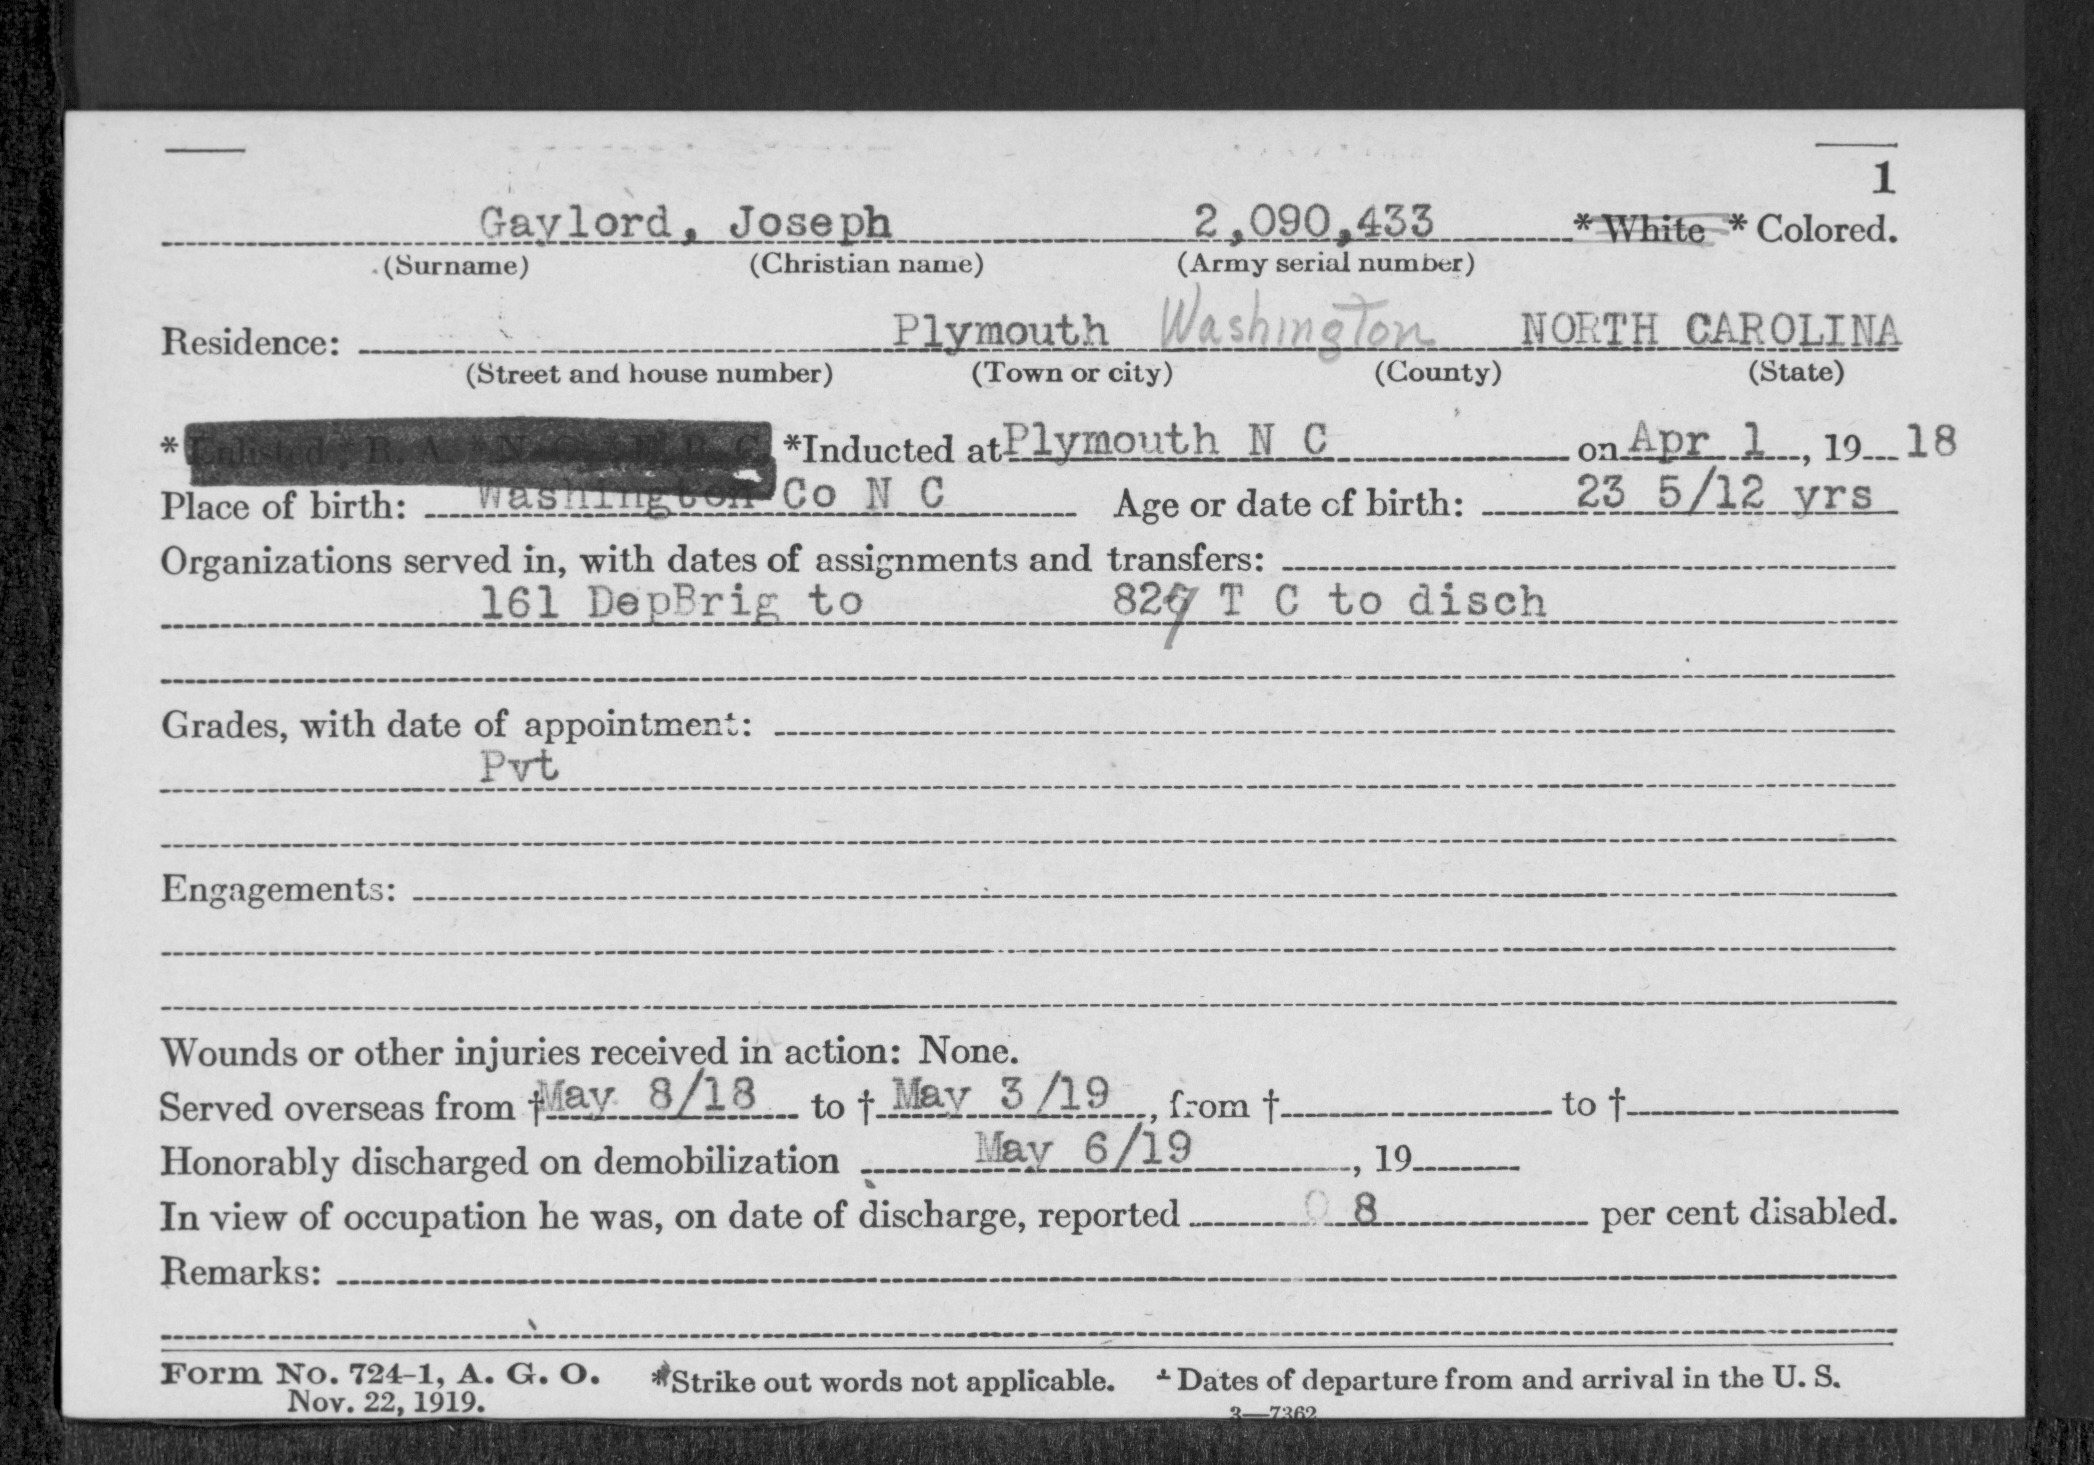 1
Gaylord, Joseph 2,090,433 * White * Colored.
(Surname) (Christian name) (Army serial number)
Residence: Plymouth Washington NORTH CAROLINA
(Street and house number) (Town or city) (County) (State)
* Enlisted * R. A. * N. G. * E. R. C. *Inducted at Plymouth N C on Apr 1, 19 18
Place of birth: Washington Co N C Age or date of birth: 23 5/12 yrs
Organizations served in, with dates of assignments and transfers:
161 DepBrig to 827 T C to disch
Grades, with date of appointment:
Pvt
Engagements:
Wounds or other injuries received in action: None.
Served overseas from † May 8/18 to † May 3/19, from † to †
Honorably discharged on demobilization May 6/19, 19
In view of occupation he was, on date of discharge, reported 0 8 per cent disabled.
Remarks:
Form No. 724-1, A. G. O. *Strike out words not applicable. † Dates of departure from and arrival in the U. S.
Nov. 22, 1919. 3—7362